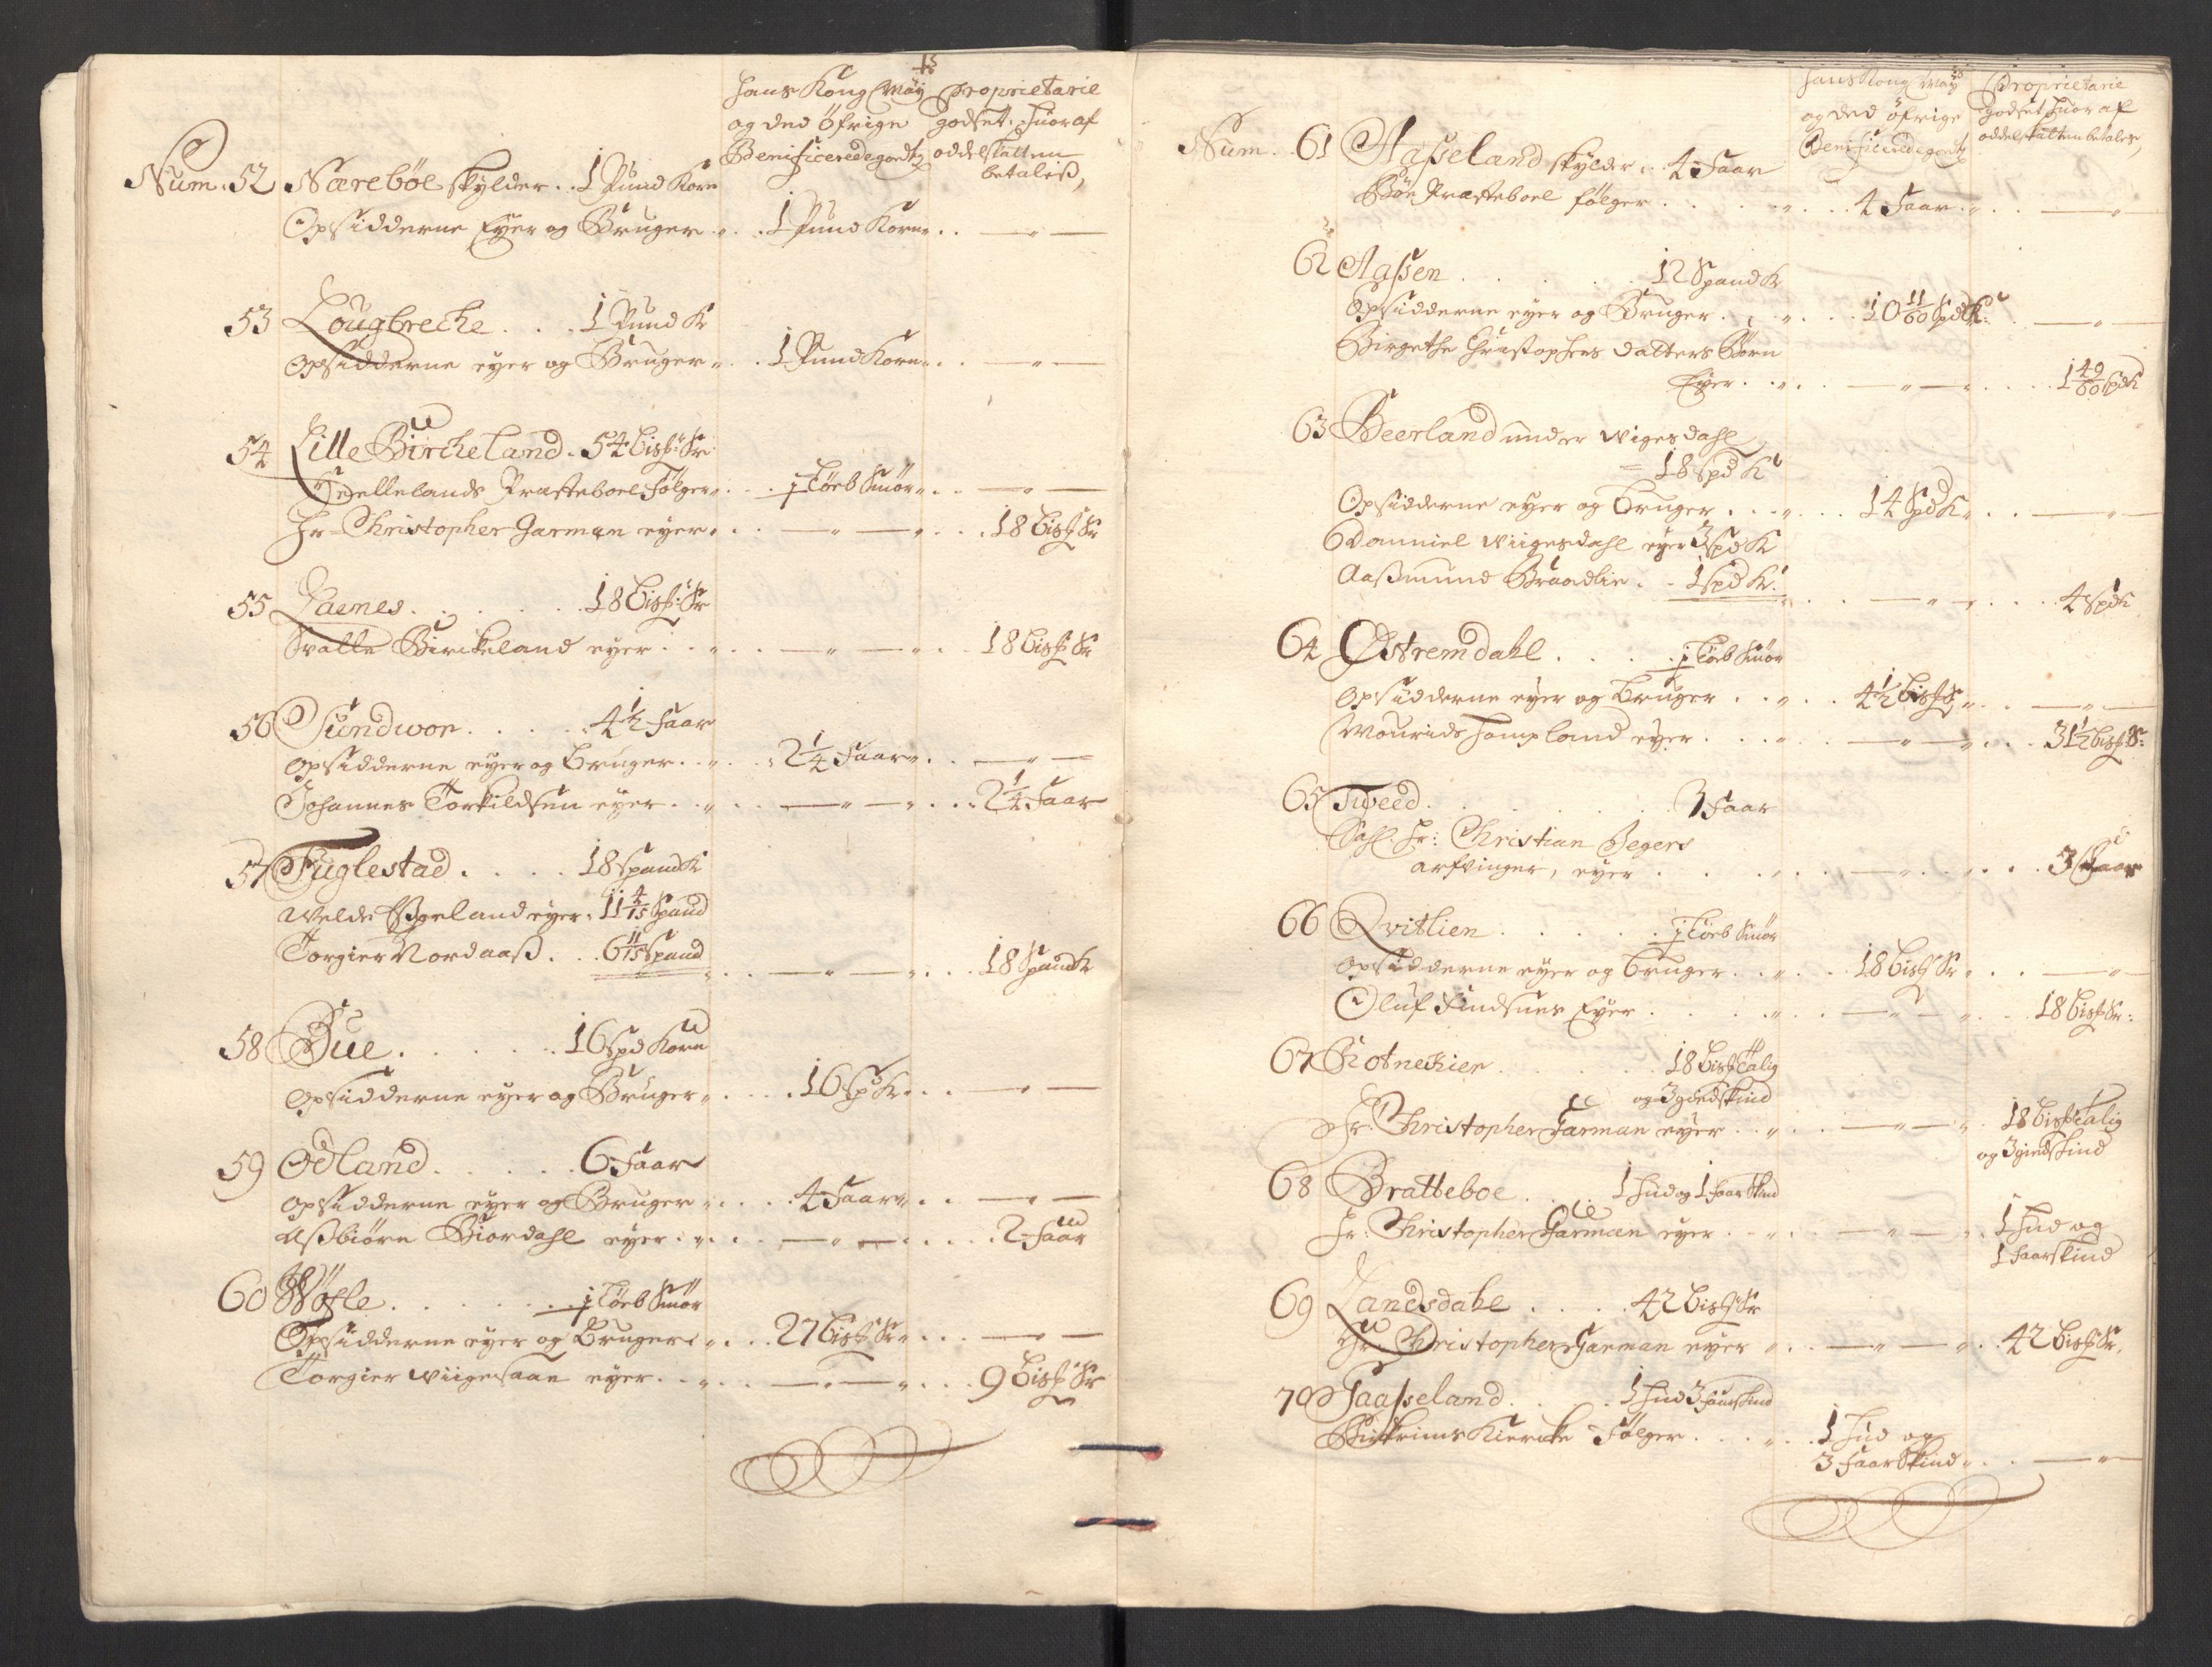 Hans Kong May
og ded Öfrige
Benificeredegodtz
Proprietarie
godset, Huoraf
oddelskatten
betaless,
Num. 52 Næreböe skylder . . 1 Pund Korn
Opsidderne Eyer og Bruger . . 1 Pund Korn . . — " —
53 Lougbreche . . . 1 Pund K
Opsidderne eyer og Bruger . . 1 Pund Korn . . — " —
54 Lille Bircheland . 54 Bisp: Sr
Hellelands Præsteboel Fölger . . 1 Löeb Smör . . — " —
Hr Christopher Garman eyer . . — " — . . 18 Bisp Sr
55 Laenes . . . . 18 Bisp: Sr
Svalle Birckeland eyer . . — " — . . 18 Bisp Sr
56 Sundwor . . . . 4½ Faar
Opsidderne eyer og Bruger . . 2¼ Faar . . — " —
Johannes Torkildsen eyer . . — " — . . 2¼ Faar
57 Fuglestad . . . . 18 Spand K
Velde Espeland eyer . 11 4/15 Spand
Torgier Nordaass . . 6 11/15 Spand
. . — " — . . 18 Spand K
58 Bue . . . . . 16 Spd Korn
Opsidderne eyer og Bruger . . 16 Sp K . . — " —
59 Ödland . . . . . 6 Faar
Opsidderne eyer og Bruger . . 4 Faar . . — " —
Assbiörn Biordahl eyer . . — " — . . 2 Faar
60 . . . . . 1 Löeb Smör
Opsidderne eyer og Bruger . . 27 Bisp Sr . . — " —
Torgier Wiigesaae eyer . . — " — . . 9 Bisp Sr
Hans Kong May
og ded öfrige
Benificeredegodtz
Proprietarie
godset Huor af
oddelskatten betales,
Num. 61 Aasseland skylder . . 4 Faar
Böe Præsteboel fölger . . . . 4 Faar . . — " —
62 Aassen . . . . . 12 Spand K
Opsidderne eyer og Bruger . . 10 11/60 Spd K . . — " —
Birgethe Christophers datters Börn
Eyer . . — " — . . 1 49/60 Spd K
63 Beerland under Wigesdahl
= 18 Spd K
Opsidderne eyer og Bruger . . . 14 Spd K . . — " —
Damniel Wiigesdahl eyer 3 Spd K
Aassmund Braadlie . . 1 Spd K.
. . — " — . . 4 Spd K
64 Östremdahl . . . . 1 Löeb Smör
Opsidderne eyer og Bruger . . . 4½ Bisp Sr . . — " —
Mourids Hompland eyer . . . — " — . . 31½ Bisp Sr:
65 Tweed . . . . . . 3 Faar
Sahl. Hr: Christian Jegers
arfvinger, eyer . . . — " — . . 3 Faar
66 Qvitlien . . . . . 1 Löeb Smör
Opsidderne eyer og Bruger . . . 18 Bisp Sr . . — " —
Oluf Findsnes Eyer . . . — " — . . 18 Bisp Sr:
67 . . . . . 18 Bisp Talig
og 3 giedskind
Hr: Christopher Garman eyer . . — " — . . 18 Bisp Talig
og 3 giedskind
68 Bratteboe . . . 1 Hud og 1 Faarskind
Hr: Christopher Garman eyer . . — " — . . 1 Hud og
1 Faarskind
69 Landsdahl . . . . 42 Bisp Sr
Hr. Christopher Garman eyer . . — " — . . 42 Bisp Sr.
70 . . . 1 Hud 3 Faarskind
Kiercke Fölger . . . . 1 Hud og
3 Faarskind . . — " —